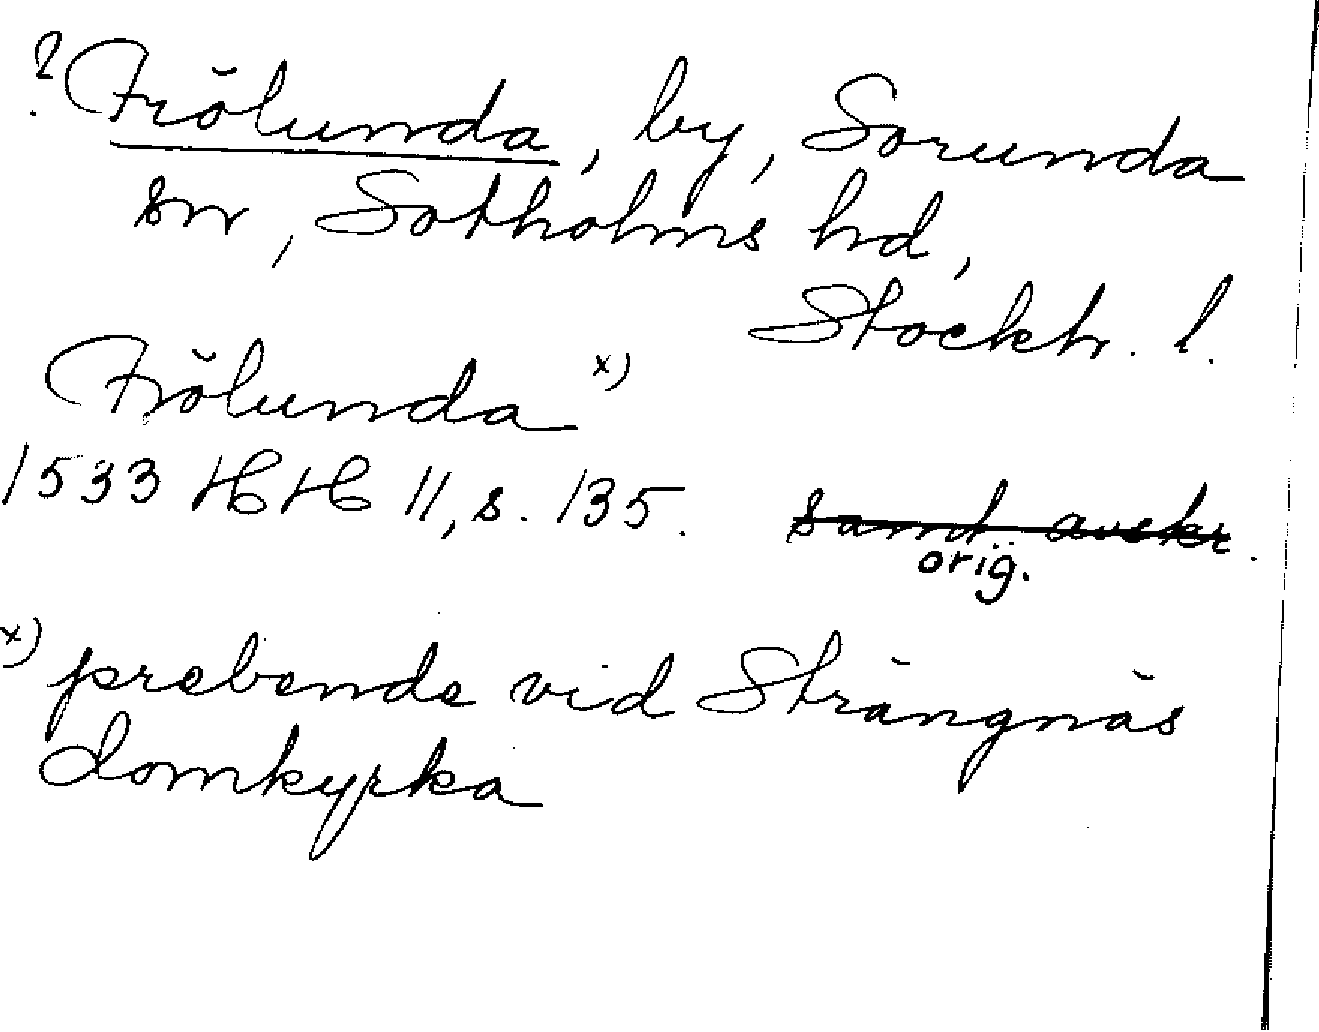 ? Frölunda, by, Sorunda
sn, Sotholms hd,
Stockh. l.
Frölunda x)
1533 HH II, s. 135. samt. avskr.
orig.
x) prebende vid Strängnäs
domkyrka